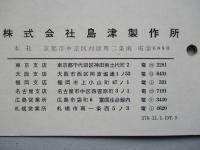 株式会社島津製作所
本社 京都市中京区河原町二条南 電⑤6888
東京支店 東京都千代田区神田美土代町2 電 2281
大阪支店 大阪市西区阿波座通1ノ53 電 4431
福岡支店 福岡市上小山町47ノ1 電 331
名古屋支店 名古屋市中区西菅原町3ノ1 電 3181
広島営業所 広島市袋町6 富国生命館内 電 3340
札幌営業所 札幌市南一条西5ノ3 電 3629
578-11.1